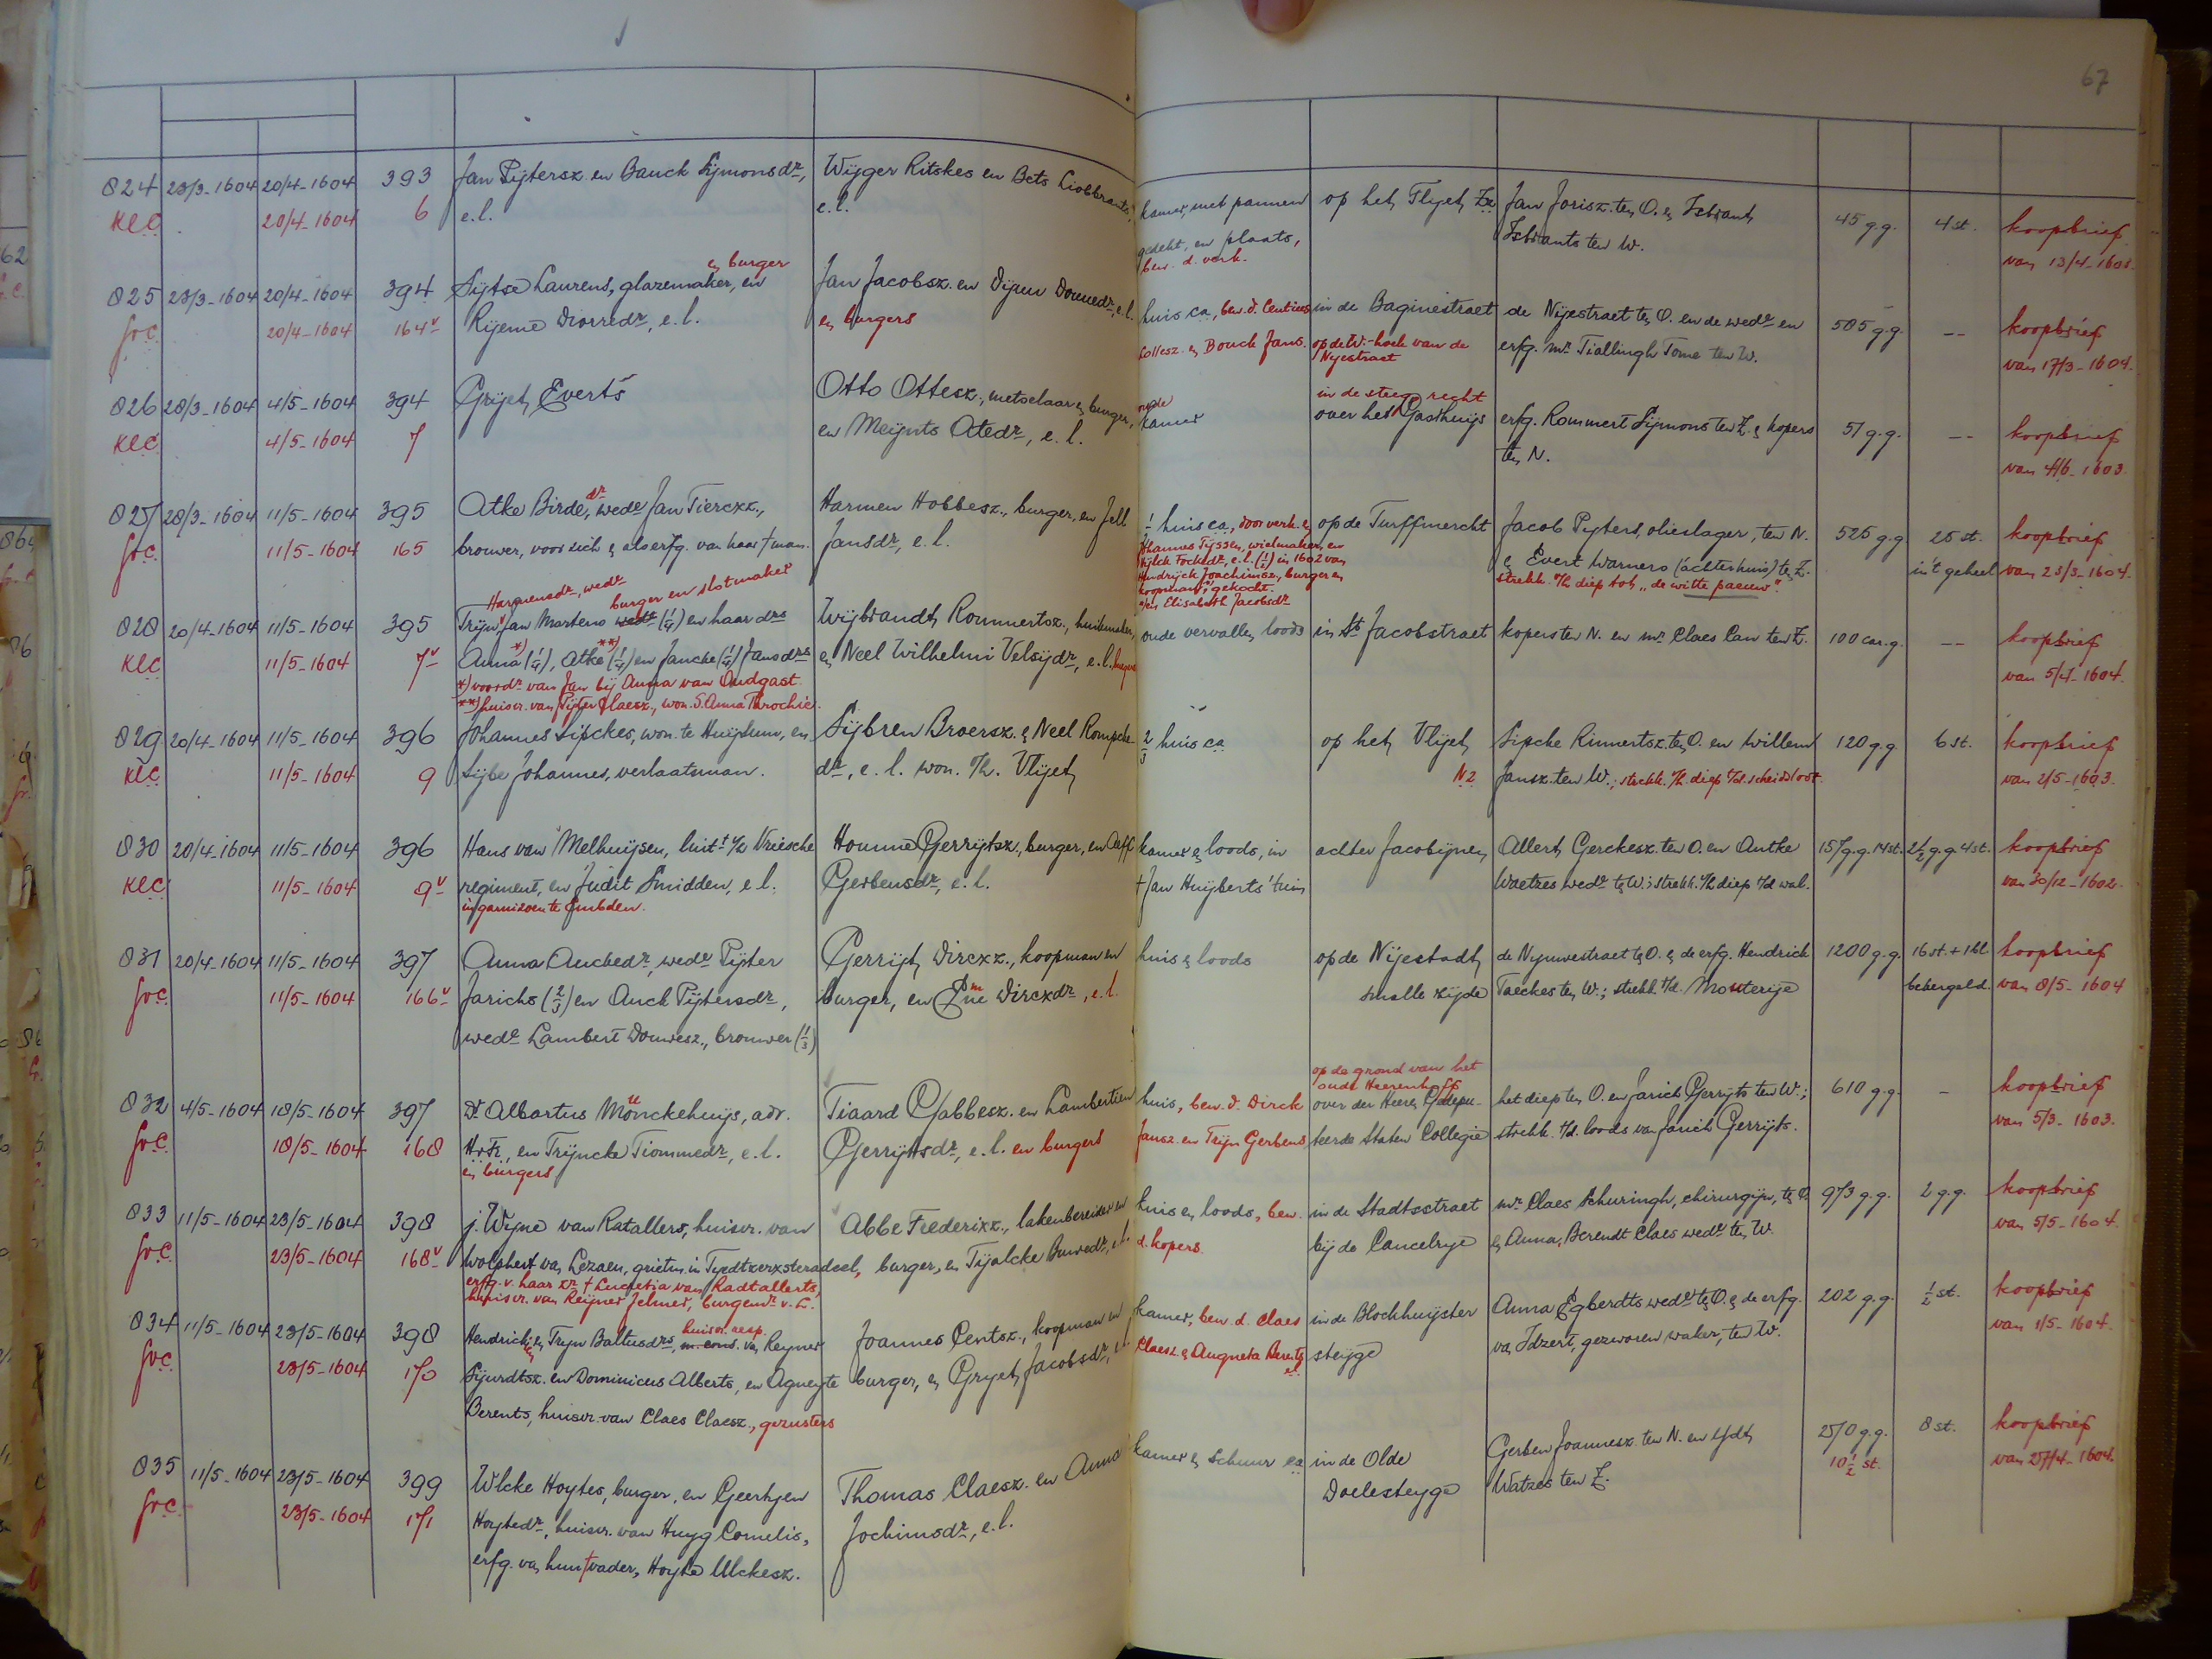 67
824 23/3-1604 20/4-1604 393 Jan Pijtersz. en Bauck Sijmonsdr, Wijger Ritskes en Bets kamer, met pannen op het Vlijet Jan Jorisz. ten O. en Isbrant 45 g.g. 4 st. koopbrief
KLC 20/4-1604 6 e.l. e.l. gedekt, en plaats, Isbrants ten W. van 13/4-
bew. d. verk.
en burger
825 23/3-1604 20/4-1604 394 Sijtse Laurens, glazemaker, en Jan Jacobsz. en Dijeuw Douwedr, e.l. huis ca, bew. d. in de Baginestraet de Nijestraet ten O. en de wedr en 585 g.g. -- koopbrief
GrC 20/4-1604 164v Rijeme Diorredr, e.l. en burgers en Bouck Jans. op de W.-hoek van de erfg. mr Tiallingh Tome ten W. van 17/3-1604.
Nyestraet
in de steeg recht
826 28/3-1604 4/5-1604 394 Grijet Everts Otto Ottesz., metselaar en burger, oude over het Gasthuijs erfg. Rommert Sijmons ten Z. en kopers 51 g.g. -- koopbrief
KLC 4/5-1604 7 en Meijnts Atedr, e.l. kamer ten N. van 4/6-1603
827 28/3-1604 11/5-1604 395 Atke Birde, dr wedr Jan Tierckz., Harmen Hobbesz., burger, en Jell ½ huis ca, door verk. en op de Turffmerckt Jacob Pijters, olieslager, ten N. 525 g.g. 28 st. koopbrief
GrC 11/5-1604 165 brouwer, voor zich en als erfg. van haar † man. Jansdr, e.l. Johannes Tijssen, wielmaker, en en Evert Warners (achterhuis) ten Z. in 't geheel van 23/3-1604.
Fockedr, e.l. (½) in 1602 van strekk. t/h diep tot "de witte paeuw".
Hendrijck Joachimsz., burger en
koopman, gekocht.
en Elisabeth Jacobsdr
Harmensdr, wedr burger en slotmaker
828 20/4-1604 11/5-1604 395 Trijn Jan Martens wedr (¼) en haar drs Wijbrandt Rommertsz., kuikemaker, oude vervallen loods in St Jacobstraet kopers ten N. en mr Claes Can ten Z. 100 car.g. -- koopbrief
KLC 11/5-1604 7v Anna *) (¼), Atke **) (¼) en Jancke (¼) Jansdrs en Neel Wilhelmi Velsijdr, e.l. van 5/4-1604.
*) voordr van Jan bij Anna van Oudgast.
**) huisvr. van Pijter Claesz., won. S. Anna Parochie.
829 20/4-1604 11/5-1604 396 Johannes Sipckes, won. te Huijzum, en Sijbren Broersz. en Neel Rompcke- ⅔ huis ca op het Vlijet Sipcke Rinnertsz. ten O. en Willem 120 g.g. 6 st. koopbrief
KLC 11/5-1604 9 Sijbe Johannes, verlaatsman. dr, e.l. won. o/h. Vlijet NZ Jansz. ten W.; strekk. t/h. diep t/d. scheidsloot van 2/5-1603.
830 20/4-1604 11/5-1604 396 Hans van Melhuijsen, luitt i/h Vriesche Homme Gerrijtsz., burger, en kamer en loods, in achter Jacobijnen Allert Gerckesz. ten O. en Antke 157 g.g. 14 st. 2½ g.g. 4 st. koopbrief
KLC 11/5-1604 9v regiment, en Judit Smidden, e.l. Gerbensdr, e.l. † Jan Huijberts' tuin Watzes wedr ten W.; strekk. t/h diep t/d wal. van 30/12-1602.
in garnizoen te Embden.
831 20/4-1604 11/5-1604 397 Anna Auckedr, wedr Pijter Gerrijt Dirckz., koopman en huis en loods op de Nijestadt de Nijnwestraet ten O. en de erfg. Hendrick 1200 g.g. 16 st. + 1 bl. koopbrief
GrC 11/5-1604 166v Jarichs (⅔) en Auck Pijtersdr, burger, en Dirckdr, e.l. smalle zijde Taeckes ten W.; strekk. t/d. Mouterije bekergeld van 8/5-1604
wedr Lambert Douwesz., brouwer (⅓)
op de grond van het
oude Heerenhoff
832 4/5-1604 18/5-1604 397 Dr Albartus Monckehuijs, adv. Tiaard Gabbesz. en Lambertien huis, bew. d. Dirck over der Heeren Gedepu- het diep ten O. en Jarich Gerrijts ten W.; 610 g.g. - koopbrief
GrC 18/5-1604 168 HvF., en Trijncke Tiommedr, e.l. Gerrijtsdr, e.l. en burgers Jansz. en Trijn Gerbens teerde Staten Collegie strekk. t/d. loods van Jarich Gerrijts. van 5/3-1603.
en burgers
833 11/5-1604 23/5-1604 398 j. Wijne van Ratallers, huisvr. van Abbe Frederixz., lakenbereider en huis en loods, bew. in de Stadtsstraet mr Claes Schuringh, chirurgijn, ten O. 973 g.g. 2 g.g. koopbrief
GrC 23/5-1604 168v Wolphert van Lezaen, grietm. in Tyedtzerxsteradeel, burger, en Tijalcke Buwedr, e.l. d. kopers. bij de Cancelrye en Anna, Berendt Claes wedr ten W. van 5/5-1604.
erfg. v. haar zr † Lucretia van Radtallerts,
huisvr. van Reijner Jelmer, burgemr v. L.
huisvr. resp.
834 11/5-1604 23/5-1604 398 Hendrickien en Trijn Baltusdrs, m. cons. van Reyner Joannes Centsz., koopman en kamer, bew. d. Claes in de Blockhuijster Anna Egberdts wedr ten O. en de erfg. 202 g.g. ½ st. koopbrief
GrC 23/5-1604 170 Sijurdtsz. en Dominicus Alberts, en Agneyte burger, en Gryet Jacobsdr, e.l. Claesz. en Augneta Berents e.l. steijge van Idzert, gezworen waker, ten W. van 1/5-1604.
Berents, huisvr. van Claes Claesz., gezusters
835 11/5-1604 23/5-1604 399 Wlcke Hoytes, burger, en Geertjen Thomas Claesz. en Anna kamer en schuur ca in de Olde Gerben Joannesz. ten N. en Ydt 250 g.g. 8 st. koopbrief
GrC 23/5-1604 171 Hoytedr, huisvr. van Huyg Cornelis, Jochimsdr, e.l. Doelesteyge Watzes ten Z. 10½ st. van 27/4-1604.
erfg. van hun † vader, Hoyte Ulckesz.